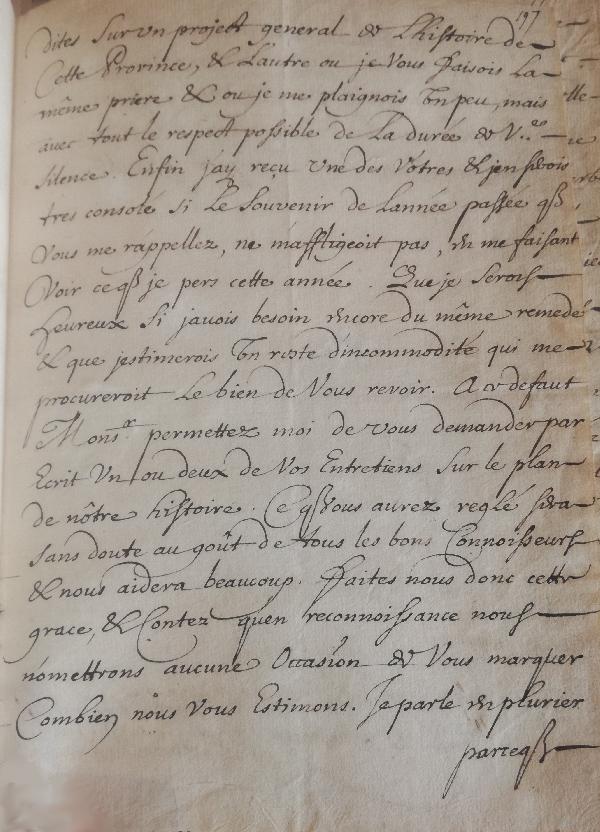 197
dites sur un project general de Lhistoire de
Cette Province, & Lautre ou je Vous faisois La
même priere & ou je me plaignois Un peu, mais
avec tout le respect possible de La durée de V.re
silence. Enfin jay reçu Une des Vôtres & jen serois
tres consolé si Le souvenir de Lannée passée q
Vous me rappellez, ne maffligeoit pas, en me faisant
Voir ce q je pers cette année. Que je serois
heureux si javois besoin encore du même remede
& que jestimerois Un reste dincommodité qui me
procureroit Le bien de Vous revoir. A ce defaut
Mons.r permettez moi de vous demander par
Ecrit Un ou deux de Vos Entretiens sur le plan
de nôtre histoire. Ce q Vous aurez reglé sera
sans doute au goût de tous les bons Connoisseurs
& nous aidera beaucoup. Faites nous donc cette
grace, & Contez quen reconnoissance nous
nomettrons aucune Occasion de Vous marquer
Combien nous Vous Estimons. Je parle en plurier
parceq